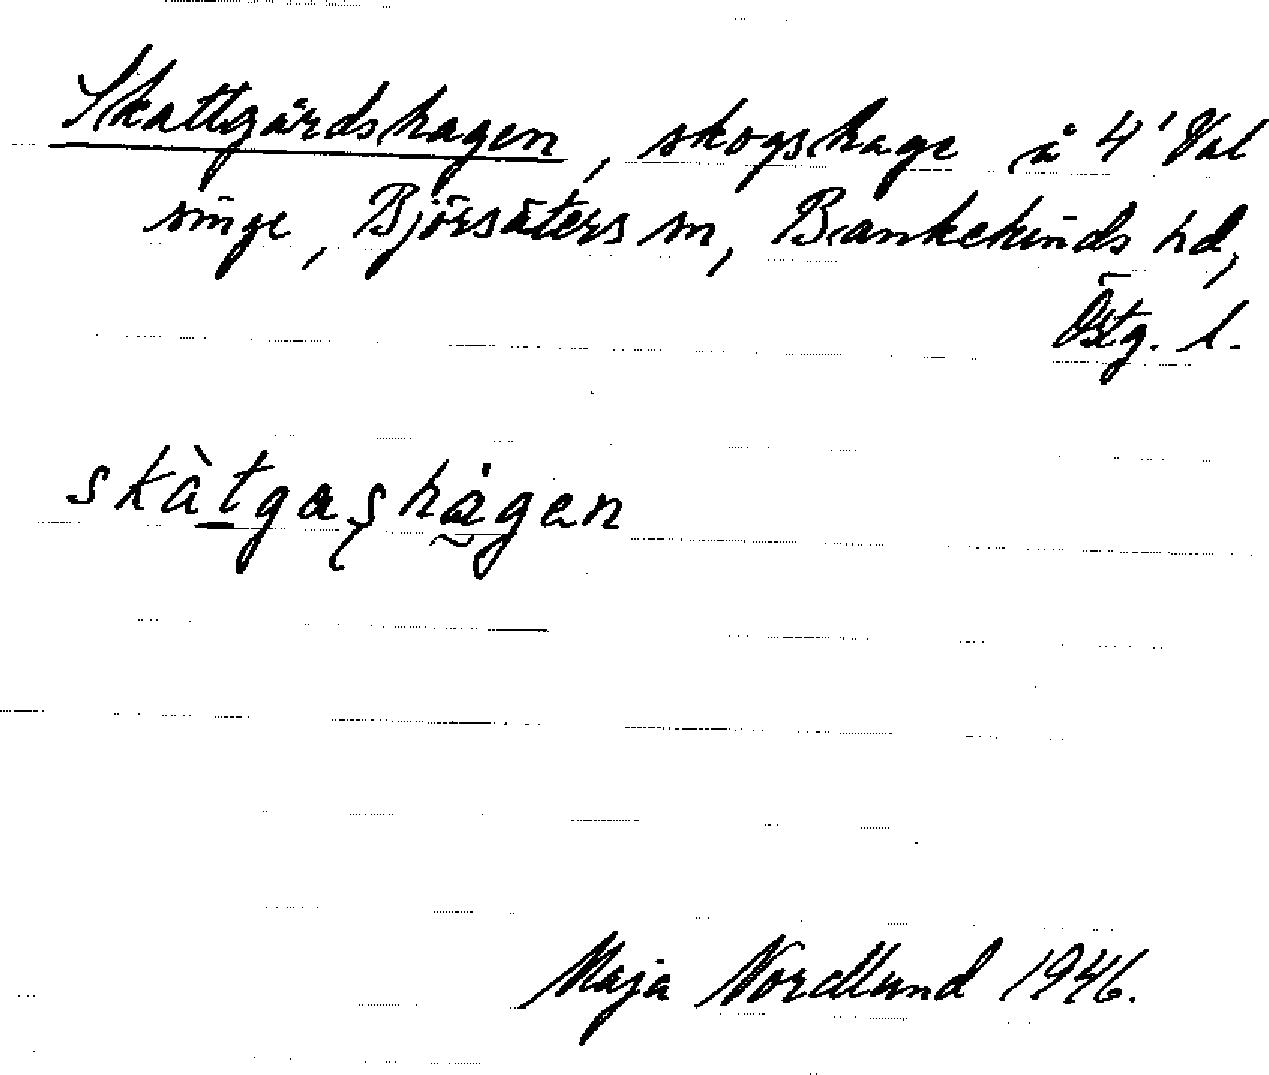 Skattgårdshagen, skogshage å 4' Val
singe, Björsäters sn, Bankekinds hd,
Östg. l.
skàtgaşhågen
Maja Nordlund 1946.